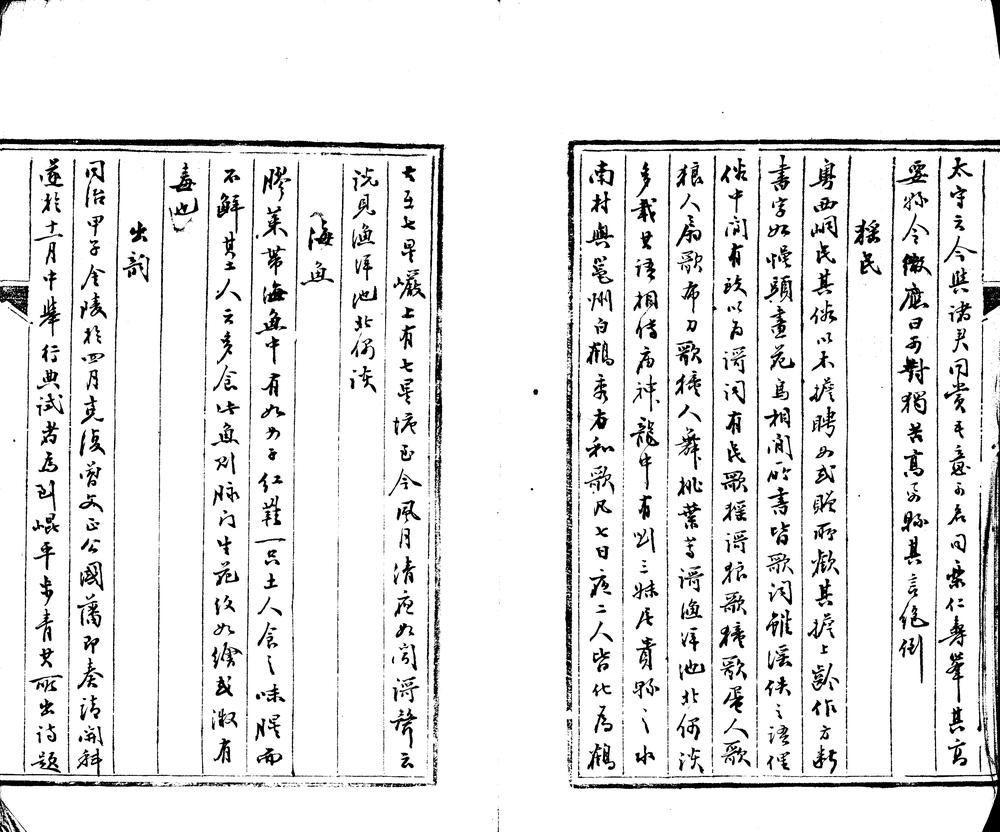 太守云今與諸君同賞其意可名同樂仁壽華其高
要縣令微應曰可對獨苦高要縣其言絕倒
猺民
粵西峒民其俗以木擔聘女或贈所歡其擔上齡作方斷
書字如慢頭畫花鳥相間所書皆歌詞雖淫佚之語俚
俗中間有致以為謌詞有民歌猺謌狼歌獞歌疍人歌
狼人扇歌布刀歌獞人舞桃葉等謌漁洋池北偶談
多載其語相傳唐神龍中有劉三妹居貴縣之水
南村與邕州白鶴秀才和歌凡七日夜二人皆化為鶴
去至七星巖上有七星塘至今風月清夜如聞謌聲云
說見漁洋池北偶談
海魚
膠萊帶海魚中有如女子紅鞵一只土人食之味腥而
不鮮其土人云多食此魚則脉門生花紋如繪或淑有
毒也
出韵
同治甲子金陵於四月克復曾文正公國藩即奏請開科
遂於十一月中舉行典試者為劉崐平步青其所出詩題